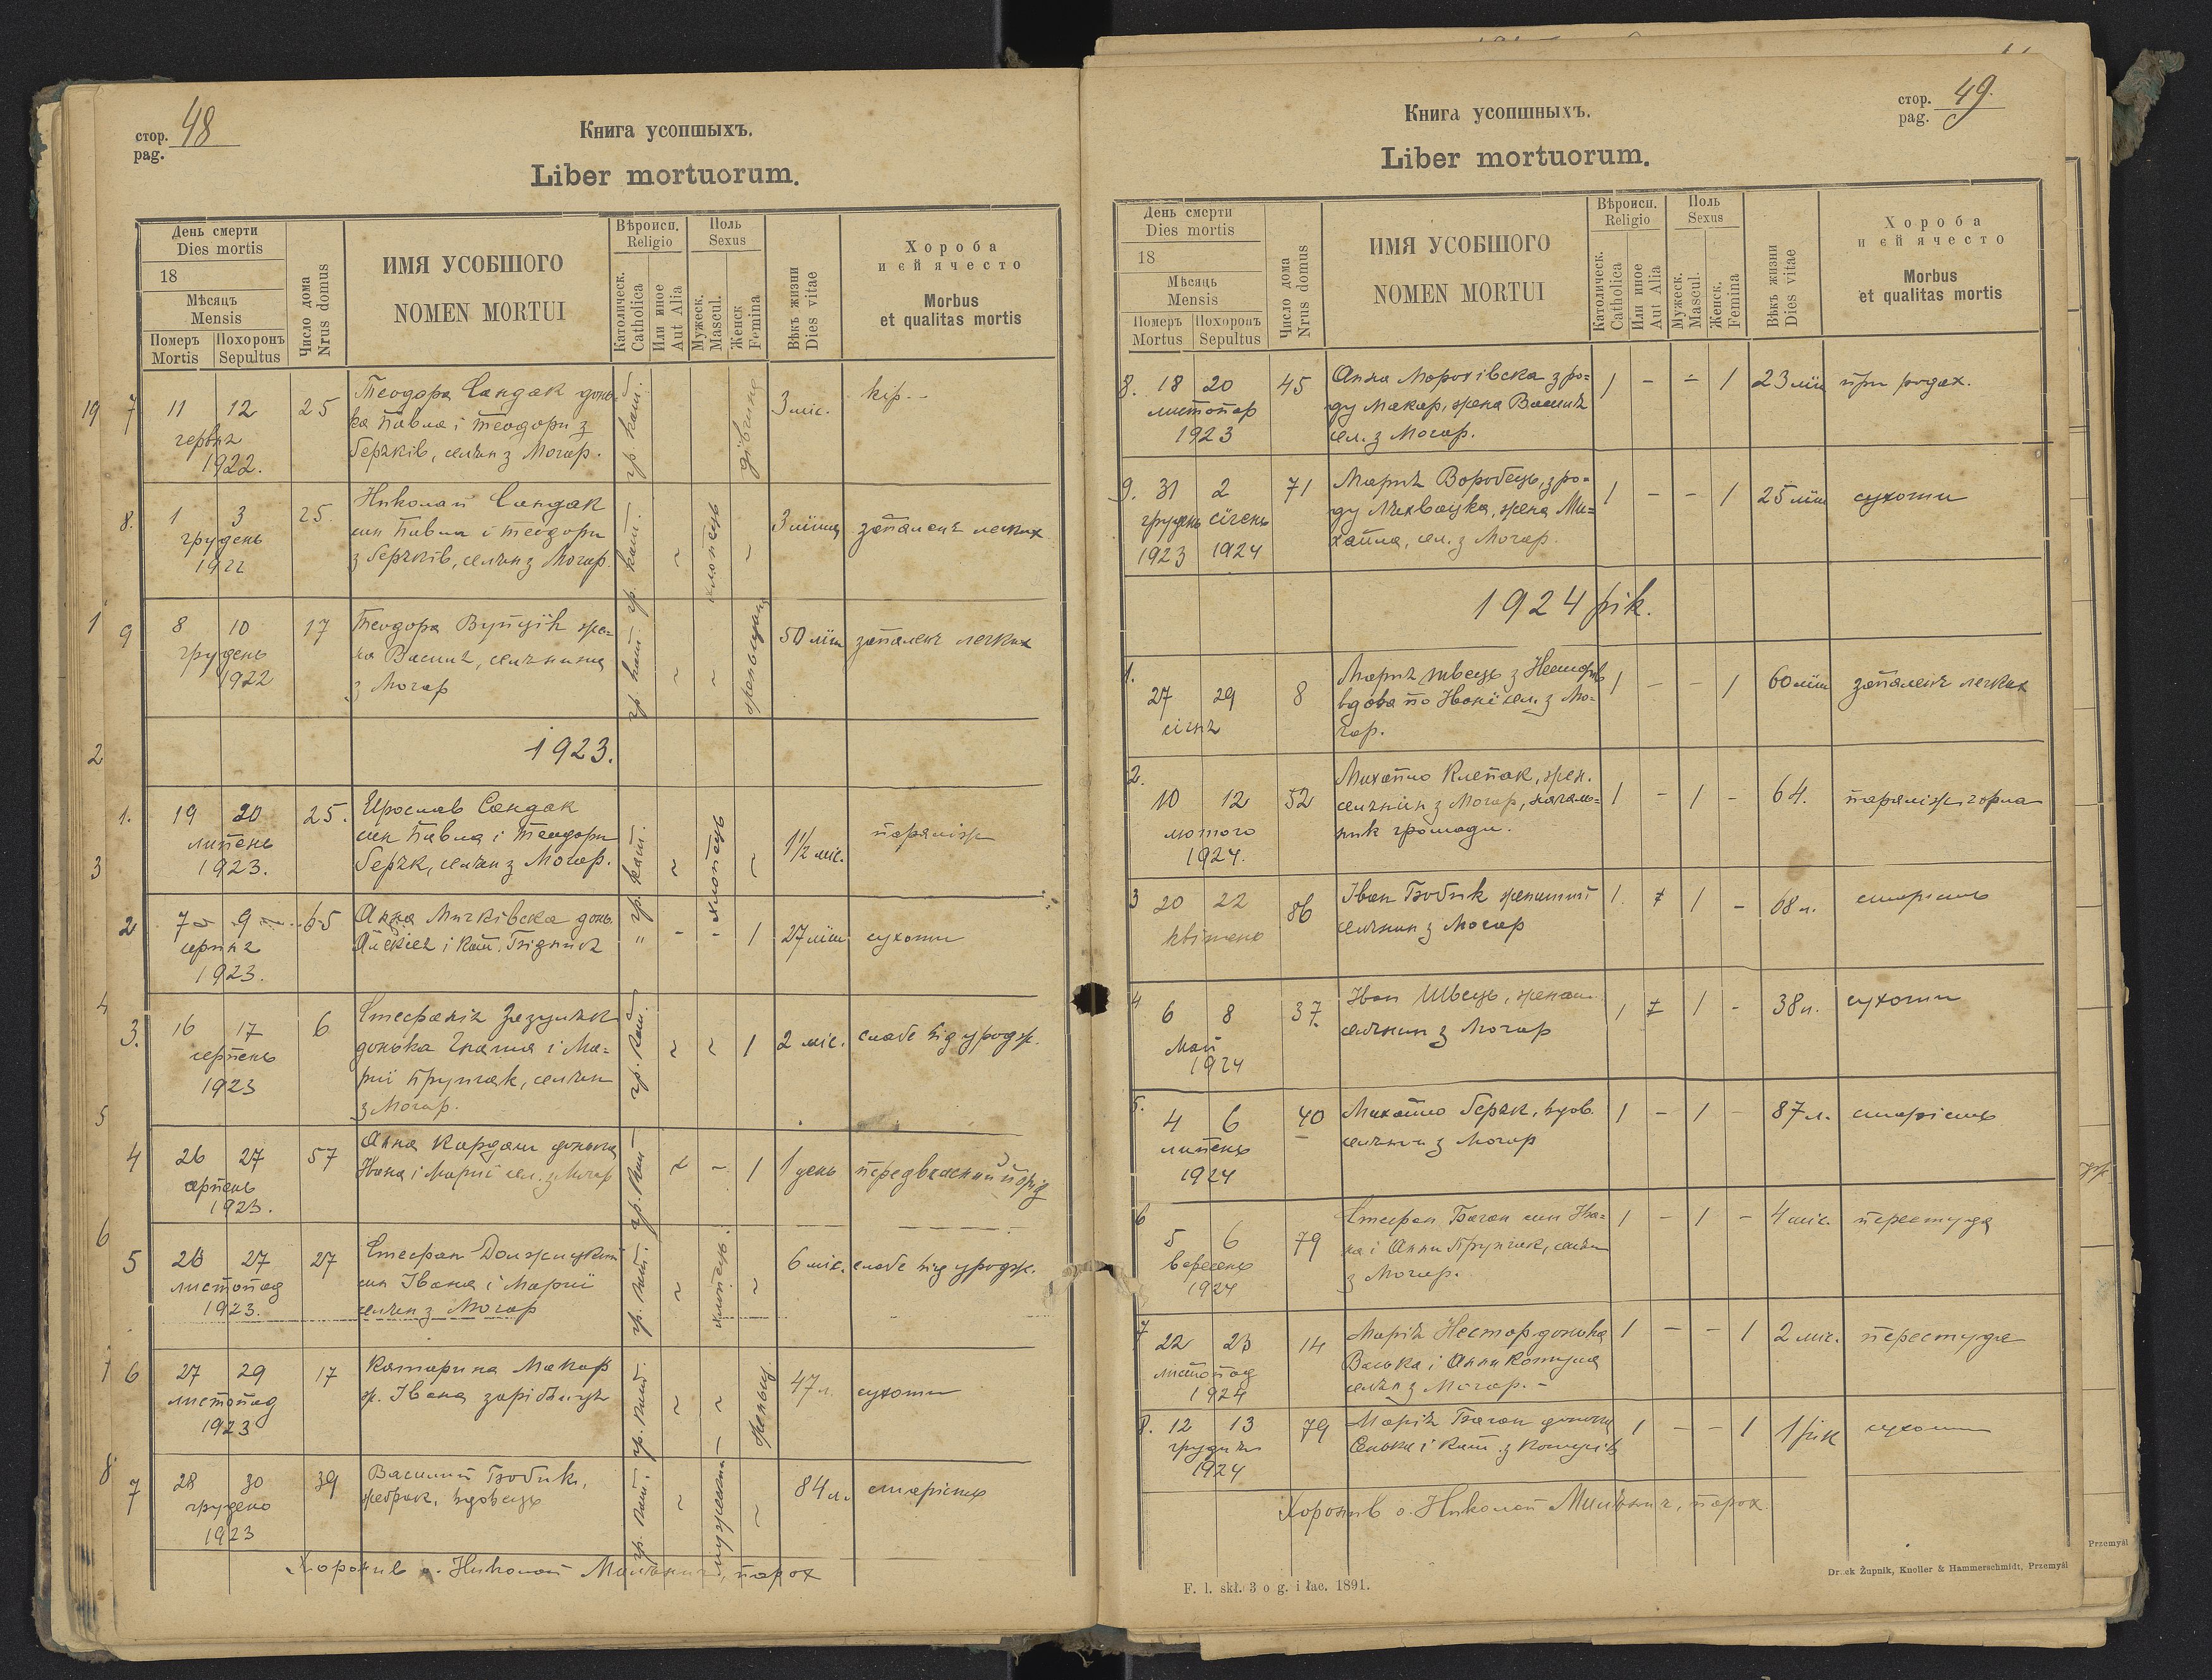 стор. 48
pag.
Книга усопшыхъ.
Liber mortuorum.
День смерти
Dies mortis
18
Мѣсяцъ
Mensis
Померъ
Mortis
Похоронъ
Sepultus
Число дома
Nrus domus
ИМЯ УСОБШОГО
NOMEN MORTUI
Вѣроисп.
Religio
Католическ.
Catholica
Или иное
Aut Alia
Поль
Sexus
Мужеск.
Mascul.
Женск
Femina
Вѣкъ жизни
Dies vitae
Хороба
и єй ячесто
Morbus
et qualitas mortis
19 7 11 12 25 Теодора Сандак донь-
ка Павла і Теодори з
червня
1922. селян з Мочар.
гр. кат. дівчина 3 міс. кір
8. 1 3 25. Николай Сандак
син Павла і Теодори
грудень
1922 селян з Мочар.
гр. кат. хлопець запаленя легких
1 9 8 10 17 Теодора
грудень
1922
з Мочар
гр. кат. 50 літ запаленя легких
2 1923.
1. 19 20 25. Ярослав Сандак
липень син Павла і Теодори
1923. селян з Мочар.
гр. кат. хлопець 1½ міс. параліж
3
2 7 9 65 Анна донь.
серпня
1923.
1 27 літ сухоти
4
3. 16 17 6 Стефанія
серпень донька Гната і Ма-
1923 рії селян
з Мочар.
гр. кат. 1 2 міс. слабе від уродж.
5
4 26 27 57 Анна Кардаш донька
серпень Івана і Марії сел. з Мочар
1923.
гр. кат. 1 1 день передвчасний порід
6
5 26 27 27 Стефан Должицкий
листопад син Івана і Марії
1923. селян з Мочар
гр. кат. хлопець 6 міс. слабе від уродж.
7 6 27 29 17 Катарина Макар
листопад ж. Івана
1923
гр. кат. 47 л. сухоти
8 7 28 30 39 Василий
грудень жебрак, вдовець
1923
гр. кат. мужеский 84 л. старість
Хоронив о. Николай парох
Книга усопшныхъ.
Liber mortuorum.
стор. 49.
pag.
День смерти
Dies mortis
18
Мѣсяць
Mensis
Померъ
Mortus
Похоронъ
Sepultus
Число дома
Nrus domus
ИМЯ УСОБШОГО
NOMEN MORTUI
Вѣроисп.
Religio
Католическ.
Catholica
Или иное
Aut Alia
Поль
Sexus
Мужеск.
Mascul.
Женск.
Femina
Вѣкъ жизни
Dies vitae
Хороба
и єй ячесто
Morbus
et qualitas mortis
8. 18 20 45 Анна з ро-
ду Макар, жена Василя
1923 сел. з Мочар.
1 - - 1 23 літ при родах.
9. 31 2 71 Марія Воробець, з ро-
грудень січень ду жена Ми-
1923 1924 хайла, сел. з Мочар.
1 - - 1 25 літ сухоти
1924 рік.
1. 27 29 8 Марія Швець з Несторів
січня вдова по Івані сел. з Мо-
чар.
1 - - 1 60 літ запаленя легких
2. 10 12 52 Михайло Клепак, жен.
лютого селянин з Мочар, началь-
1924. ник громади.
1 - 1 - 64. параліж горла
3 20 22 86 Іван
квітень селянин з Мочар
1 1 - 68 л. старість
4 6 8 37. Іван Швець, женат.
Май селянин з Мочар
1924
1 1 - 38 л. сухоти
5. 4 6 40 Михайло вдов.
липень селянин з Мочар
1924
1 - 1 - 87 л. старість
6 5 6 79 Стефан син Іва-
вересень на і Анни селян
1924 з Мочар.
1 - 1 - 4 міс. перестуда
7 22 23 14 Марія Нестор донька
листопад Васька і Анни
1924 селян з Мочар. -
1 - - 1 2 міс. перестуда
8. 12 13 79 Марія донька
грудень
1924
1 - - 1 1 рік сухоти
Хоронив о. Николай парох.
F. l. skł. 3 o g. i łac. 1891.
Druk Żupnik, Knoller & Hammerschmidt, Przemyśl
Przemyśl